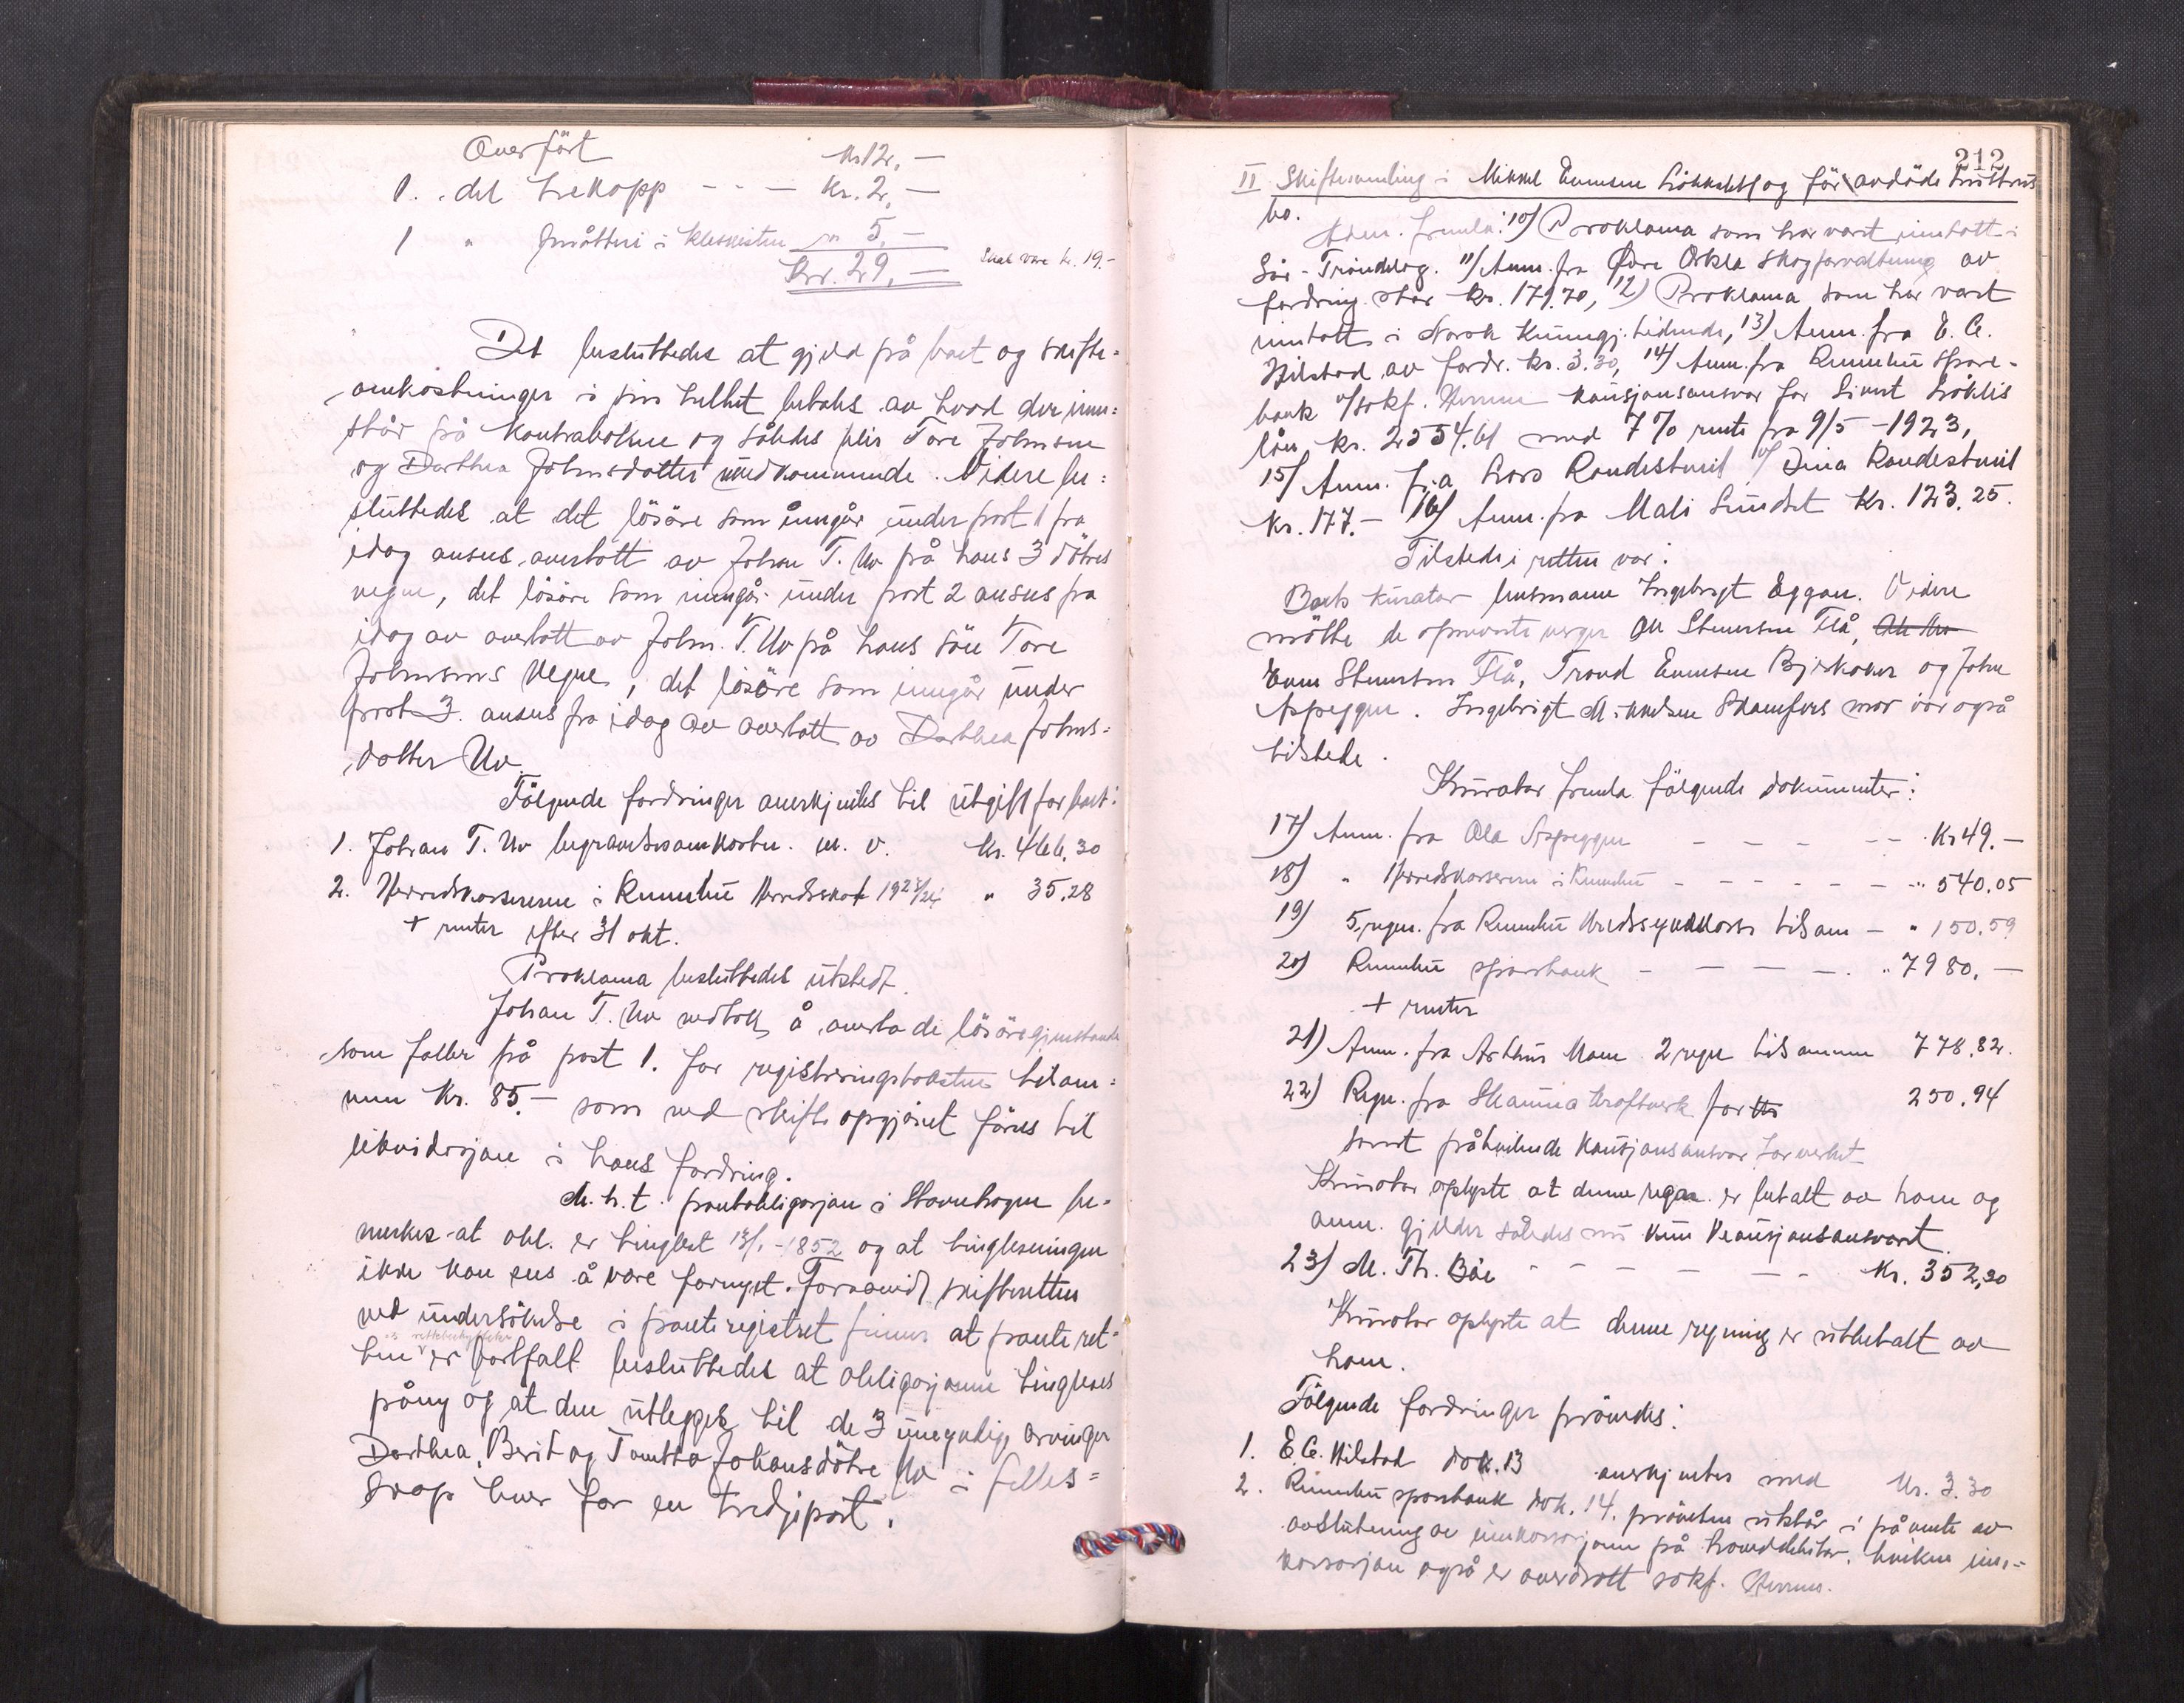 Overført kr 12,—
1 . det trekopp - - — kr. 2,—
1 " småtteri i kleskisten " 5,—
Kr. 29,— Skal være kr. 19.-
Det besluttedes at gjeld på boet og skifte=
omkostninger i sin helhet betales av hvad der inne=
står på kontrabøkene og således blir Tore Johnsen
og Dorthea Johnsdotter uvedkommende. Videre be=
sluttedes at det løsøre som inngår under post 1 fra
idag ansees overtatt av Johan T. Uv på hans 3 døtres
vegne, det løsøre som inngår under post 2 ansees fra
idag av overtatt av John. T. Uv på hans sön Tore
Johnsens vegne, det løsøre som inngår under
post 3. ansees fra idag av overtatt av Dorthea Johns=
dotter Uv.
Følgende fordringer anerkjentes til utgift for boet:
1. Johan T. Uv begravelsesomkostn. m. v. kr. 466.30
2. Herredskassereren i Rennebu Herredsskat 1923/24 " 35,28
+ renter efter 31 okt.
Proklama besluttedes utstedt.
Johan T. Uv vedtok å overta de løsøregjenstande
som faller på post 1. for registreringstaksten tilsam=
men kr. 85.— som ved skifteopgjöret föres til
likvidasjon i hans fordring.
M. h. t. panteobligasjon i Stavnehaugen be=
merkes at obl. er tinglest 13/1 - 1852 og at tinglesningen
ikke kan sees å være fornyet. Forsåvidt skifteretten
ved undersøkelse i panteregistret finner at pante ret=
ten er bortfalt besluttedes at obligasjonen tingleses
påny og at den utlegges til de 3 umyndige arvinger
Dorthea, Berit og Tomtta Johansdötre Uv i felles=
skap hver for en tredjepart.
212
II Skiftesamling i Mikkel Evensen Lökkslett og før avdöde hustrus
bo.
Adm. fremla: 10) Proklama som har vært inntatt i
Sör-Tröndelag. 11) Anm. fra Övre Orkla Skogforvaltning av
fordring stor kr. 171.70, 12) Proklama som har vært
inntatt i Norsk Kunngj. tidende, 13) Anm. fra E. C.
Hilstad av fordr. kr. 3.30, 14) Anm. fra Rennebu Spare-
bank v/sakf. kausjonsansvar for Sivert Löklis
lån kr. 2554.61 med 7% rente fra 9/5 - 1923,
15) Anm. fra Lars Rondestveit v/ Dina Rondestveit
kr. 177.— 16) Anm. fra Mali Sundset kr. 123.25.
Tilstede i retten var:
Boets kurator lensmann Ingebrigt Eggan. Videre
mötte de opnevnte verger Ole Steensen Flå,
Even Steensen Flå, Trond Evensen Bjerkaker og John
Aspeggen. Ingebrigt Mikkelsen Skamfers mor var også
tilstede.
Kurator fremla fölgende dokumenter:
17) Anm. fra Ola Aspeggen - - - - - kr 49.—
18) " Herredskassereren i Rennebu - - - - - " 540,05
19) 5 regn. fra Rennebu kredssykekasse tilsam — " 150.59
20) Rennebu sparebank - — — — . " 7980.—
+ renter
21) Anm. fra Arthur Moum 2 regn tilsammen 778.82.
22) Regn. fra Skauma kraftverk for 250.94
samt påhvilende kausjonsansvar for verket
Kurator oplyste at denne regn. er betalt av ham og
anm. gjelder således nu kun kausjonsansvaret.
23) M. Th. Böe - - - - - - - kr. 352,20
Kurator oplyste at denne regning er utbetalt av
ham.
Fölgende fordringer prövedes:
1. E. C. Hilstad dok. 13 anerkjentes med kr. 3.30
2. Rennebu sparebank dok. 14. pröveten utstår i påvente av
avslutning av innkassasjonen på hoveddebitor, hvilken inn=
kassasjon også er overdratt sakf.